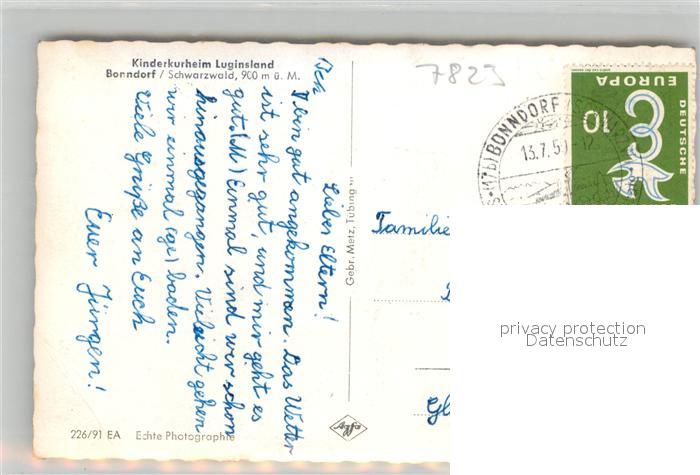 Kinderkurheim Luginsland
Bonndorf / Schwarzwald, 900 m ü. M.
7823
Lieber Eltern!
Ich
bin gut angekommen. Das Wetter
ist sehr gut, und mir geht es
gut(M) Einmal sind wir schon
hinausgegangen. Vieleicht gehen
wir einmal (ge) baden.
Viele Grüße an Euch
Euer Jürgen!
Gebr. Metz, Tübingen
Familie
Gl
BONNDORF
13.7.59-12
DEUTSCHE
EUROPA
10
privacy protection
Datenschutz
226/91 EA Echte Photographie
Agfa